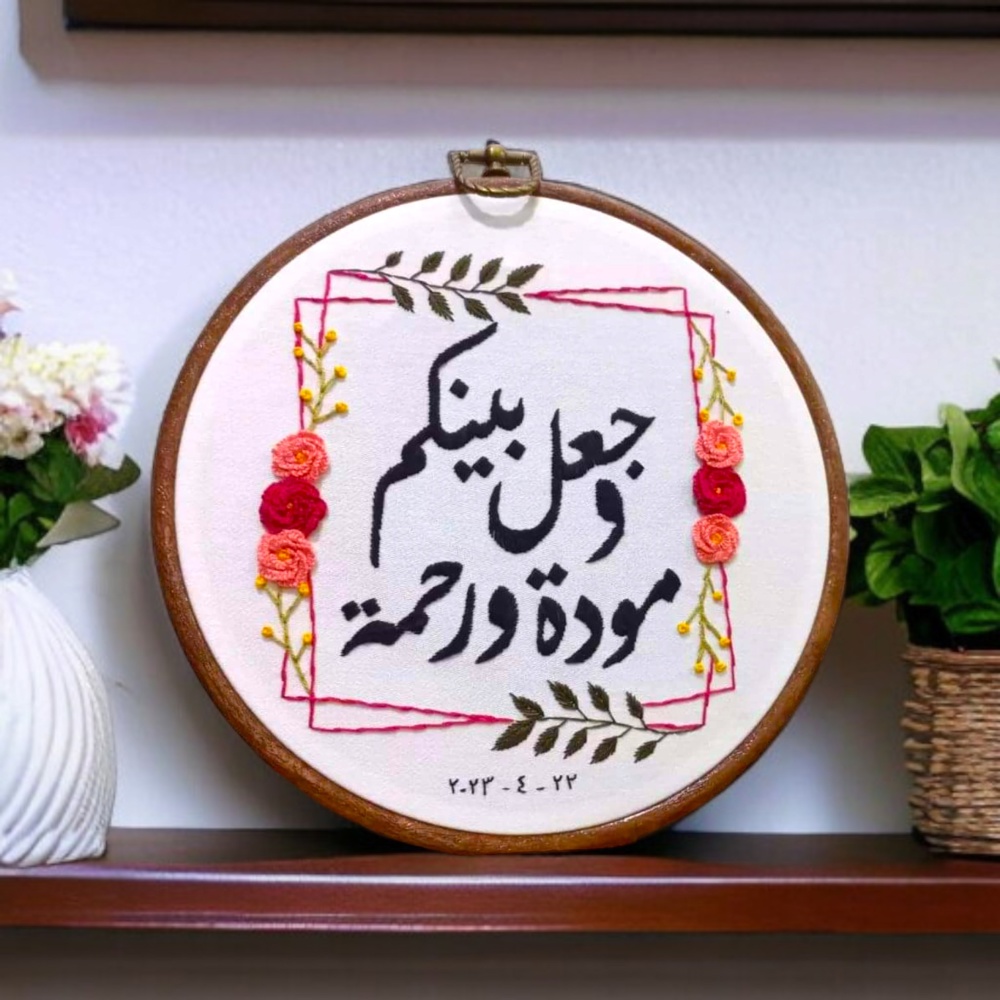 وجعل بينكم
مودة ورحمة
٢٢ - ٤ - ٢٠٢٣